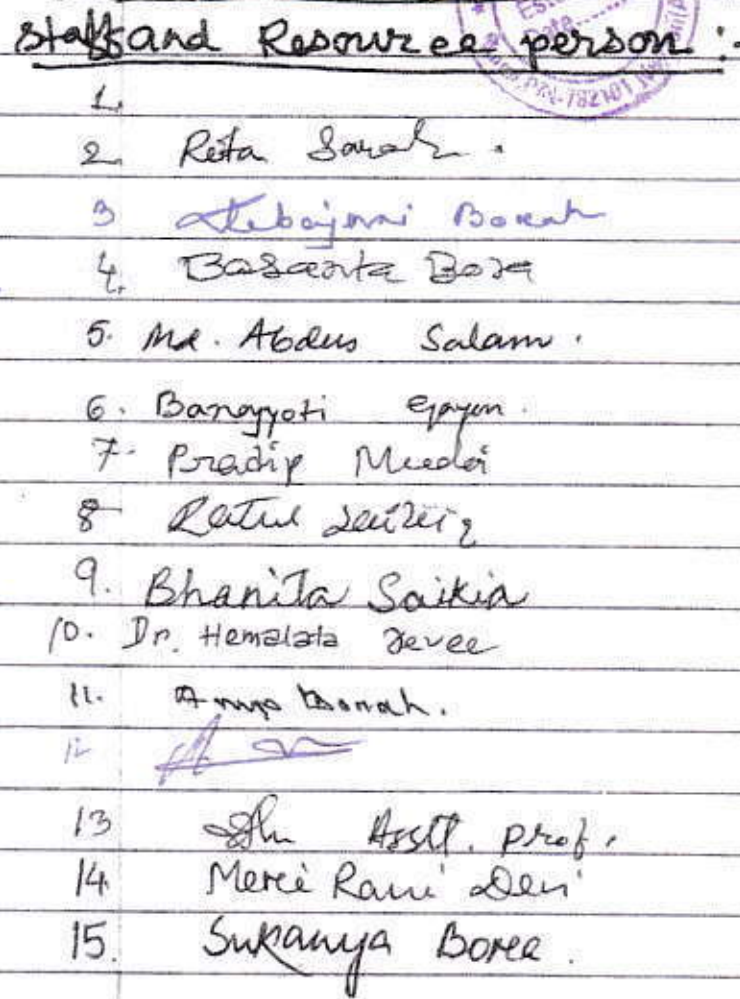 Esta
Date........
PIN-782101
Staff and Resource person :-
1.
2. Rita Borah .
3 Debajani Borah
4. Basanta Bora
5. Md. Abdus Salam .
6. Banajyoti Gayon .
7. Pradip
8 Ratul
9. Bhanita Saikia
10. Dr. Hemalata Devee
11. Anupa Borah .
12
13 Asstt. prof.
14. Merci Rani Devi
15. Sukanya Boree .